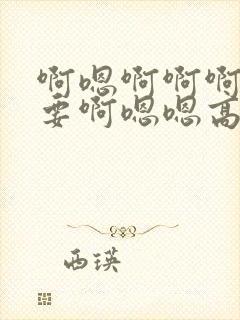 啊嗯啊啊啊
要啊嗯嗯高
西瑛